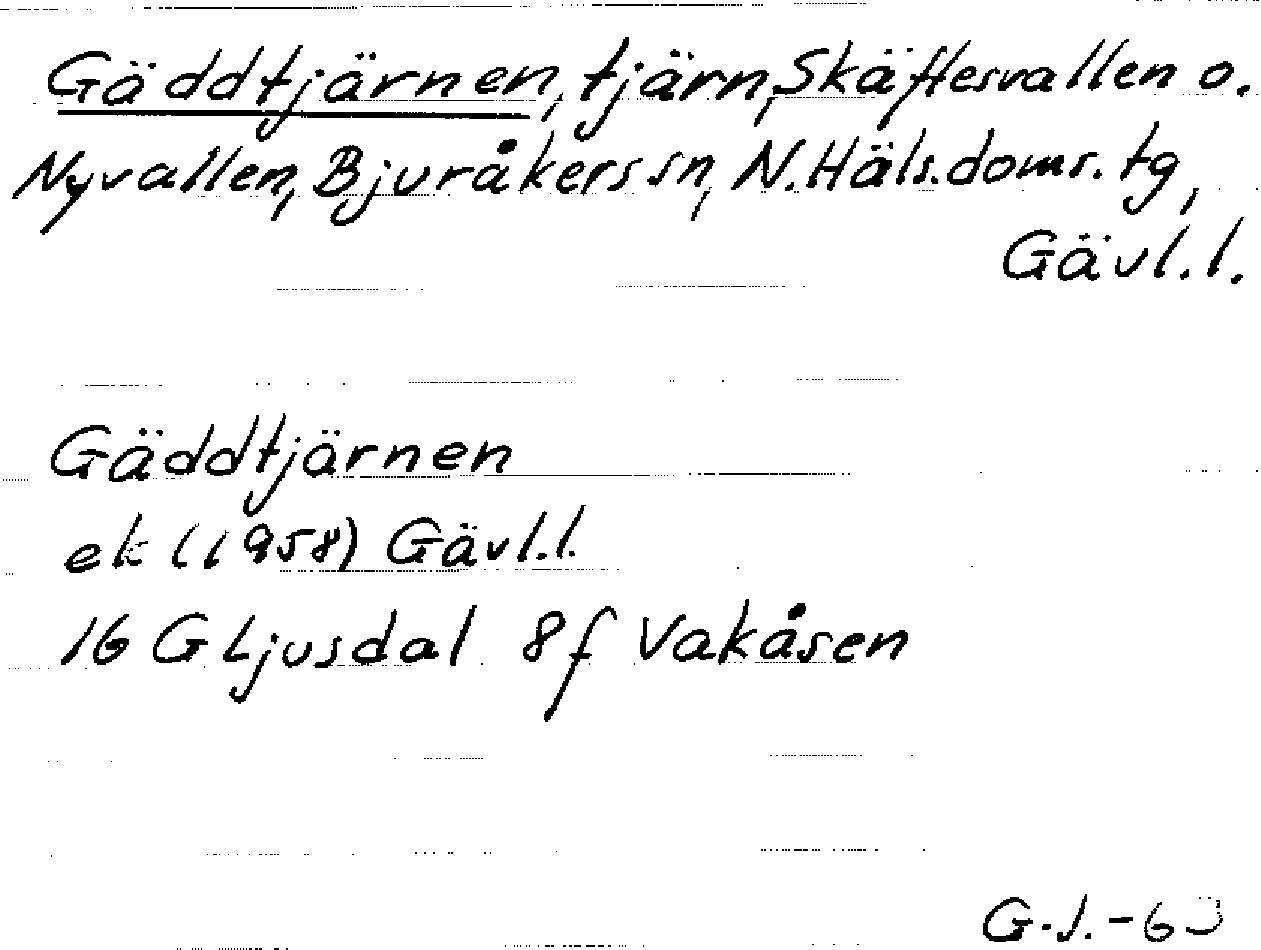 Gäddtjärnen, tjärn, Skäftesvallen o.
Nyvallen, Bjuråkers sn, N. Häls. doms. tg,
Gävl. l.
Gäddtjärnen
ek (1958) Gävl. l.
16 G Ljusdal 8f Vakåsen
G.J.-63